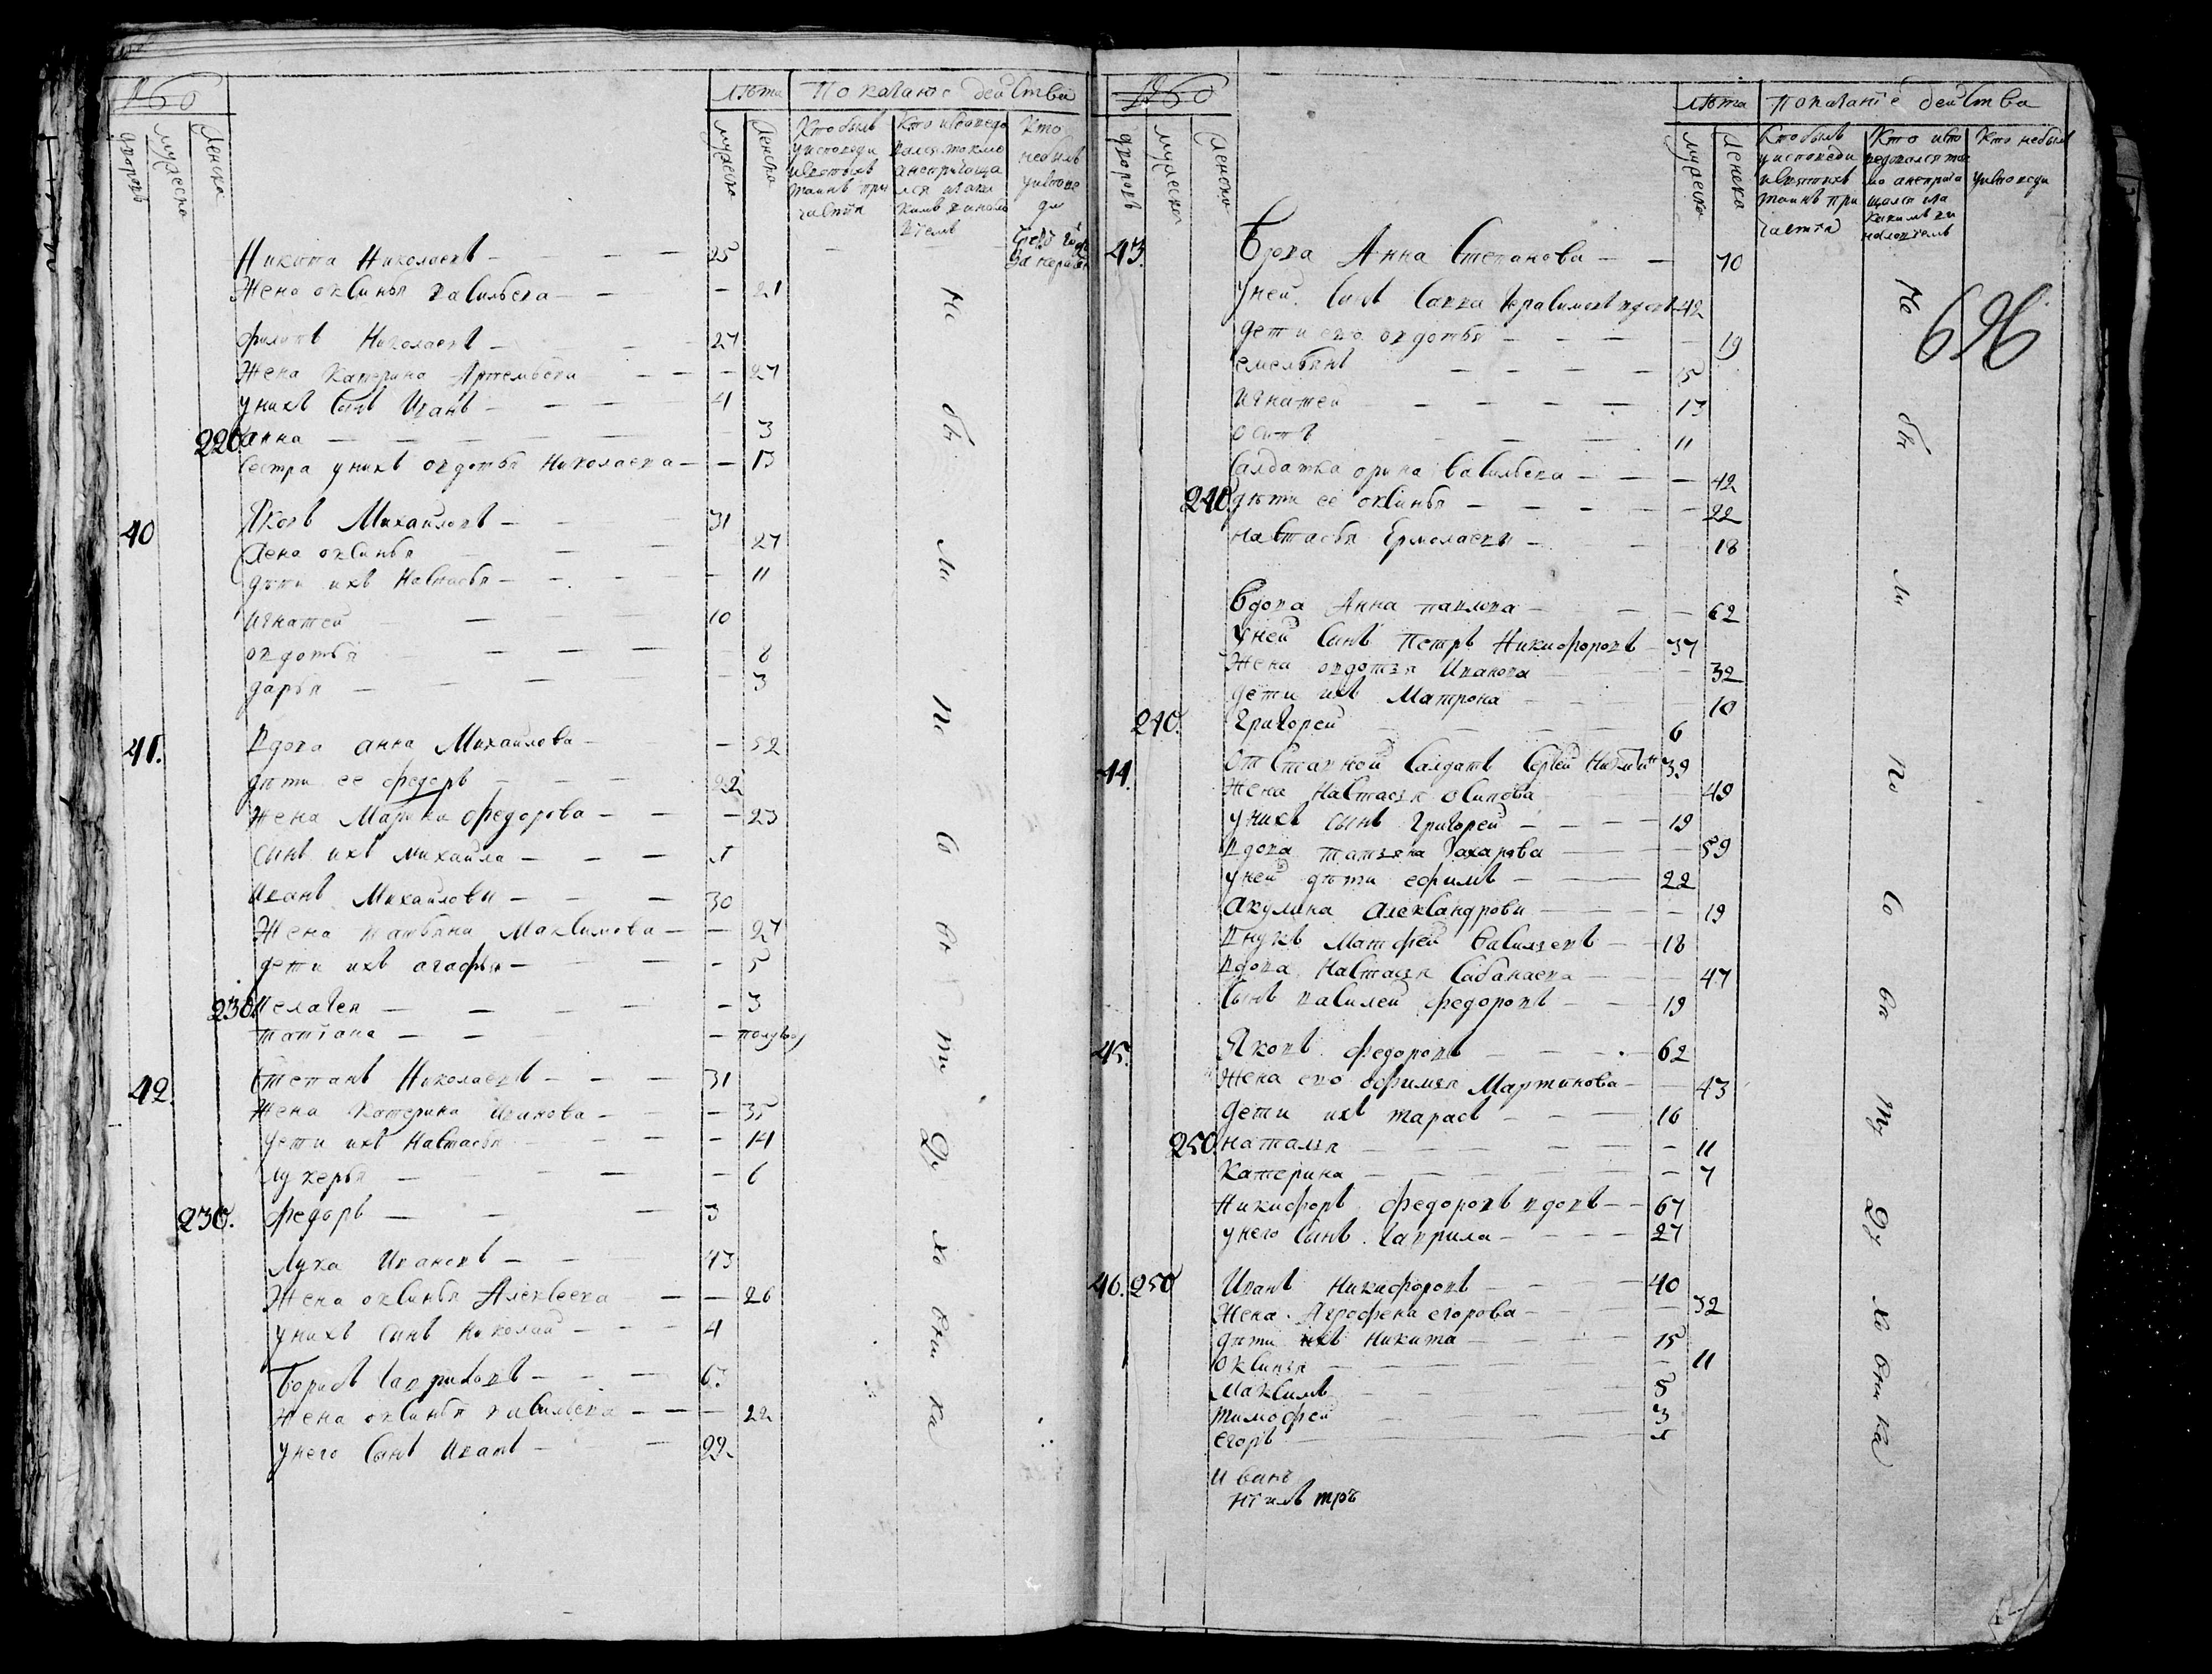 лѣта Показание действа
дворовъ мужеска женска
мужеска женска
Кто былъ у исповеди и святыхъ таинъ причастия
Кто исповедовался токмо а непричащался и за какимъ винословиемъ
Кто небылъ у исповеди
Никита Николаевъ - - - 25
Жена оксинья васильева - - - 21
филипъ Николаевъ - - 27
Жена Катерина Артемьева - - - 27
унихъ сынъ Иванъ - - - 4
220. анна - - - - - 3
Сестра унихъ овдотья Николаева - - 13
40 Яковъ Михайловъ - - - 31
Жена оксинья - - 27
дѣти ихъ Настасья - - - - 11
Игнатей - - - 10
овдотья - - - 8
дарья - - - - 3
41. Вдова анна Михайлова - - 52
дѣти ее федоръ - - - 22
Жена Марина федорова - - - 23
Сынъ ихъ михайла - - - 1
Иванъ Михайловъ - - - 30
Жена татьяна Максимова - - 27
дети ихъ агафья - - - - 5
230. пелагея - - - - - 3
татiана - - - - полугод
42. Степанъ Николаевъ - - - 31
Жена Катерина Иванова - - - 35
дети ихъ Настасья - - - - 14
лукерья - - - - 6
230. федоръ - - - 3
Лука Ивановъ - - 43
Жена оксинья Алексеева - - 26
унихъ сынъ Николай - - - 4
Борисъ Гавриловъ - - - 63
Жена оксинья васильева - - - 22
унего сынъ Иванъ - - 22
Не бы ли по со ве ту Ду хо вни ка
лѣта показание действа
дворовъ мужеска женска
мужеска женска
Кто былъ у исповеди и святыхъ таинъ причастия
Кто исповедовался токмо а непричащался и за какимъ винословиемъ
Кто небылъ у исповеди
696
43. Вдова Анна Степанова - - 70
Уней сынъ Савва Герасимовъ вдовъ 42
дети его овдотья - - - - 19
емельянъ - - - - 15
Игнатей - - - - - 13
осипъ - - - 11
Салдатка орина васильева - - - 42
240. дѣти ее оксинья - - - - - 22
Настасья Ермолаева - - - 18
Вдова Анна павлова - - - 62
Уней сынъ Петръ Никифоровъ - 37
Жена овдотья Иванова - 32
дети ихъ Матрона - - - 10
240. Григорей - - - 6
44. Отставной Салдатъ Сергей 39
Жена Настасья осипова - 49
Унихъ сынъ Григорей - - - - 19
Вдова татьяна Захарова - - - 59
уней дѣти ефимъ - - - 22
Акулина Александрова - - - 19
Внукъ Матфей васильевъ - - 18
Вдова Настасья - - 47
Сынъ василей федоровъ - - - 19
45. Яковъ федоровъ - - - 62
Жена ево афимья Мартинова - - 43
дети ихъ тарасъ - - - 16
250. наталья - - - - - - 11
Катерина - - - - - - 7
Никифоръ федоровъ вдовъ - - 67
унего сынъ гаврила - - - - 27
46. 250 Иванъ Никифоровъ - - - 40
Жена Аграфена егорова - - - 32
дѣти ихъ Никита - - - - 15
оксинья - - - - 11
Максимъ - - - 5
тимофей - - - 3
егоръ - - - - 1
Не бы ли по со ве ту Ду хо вни ка